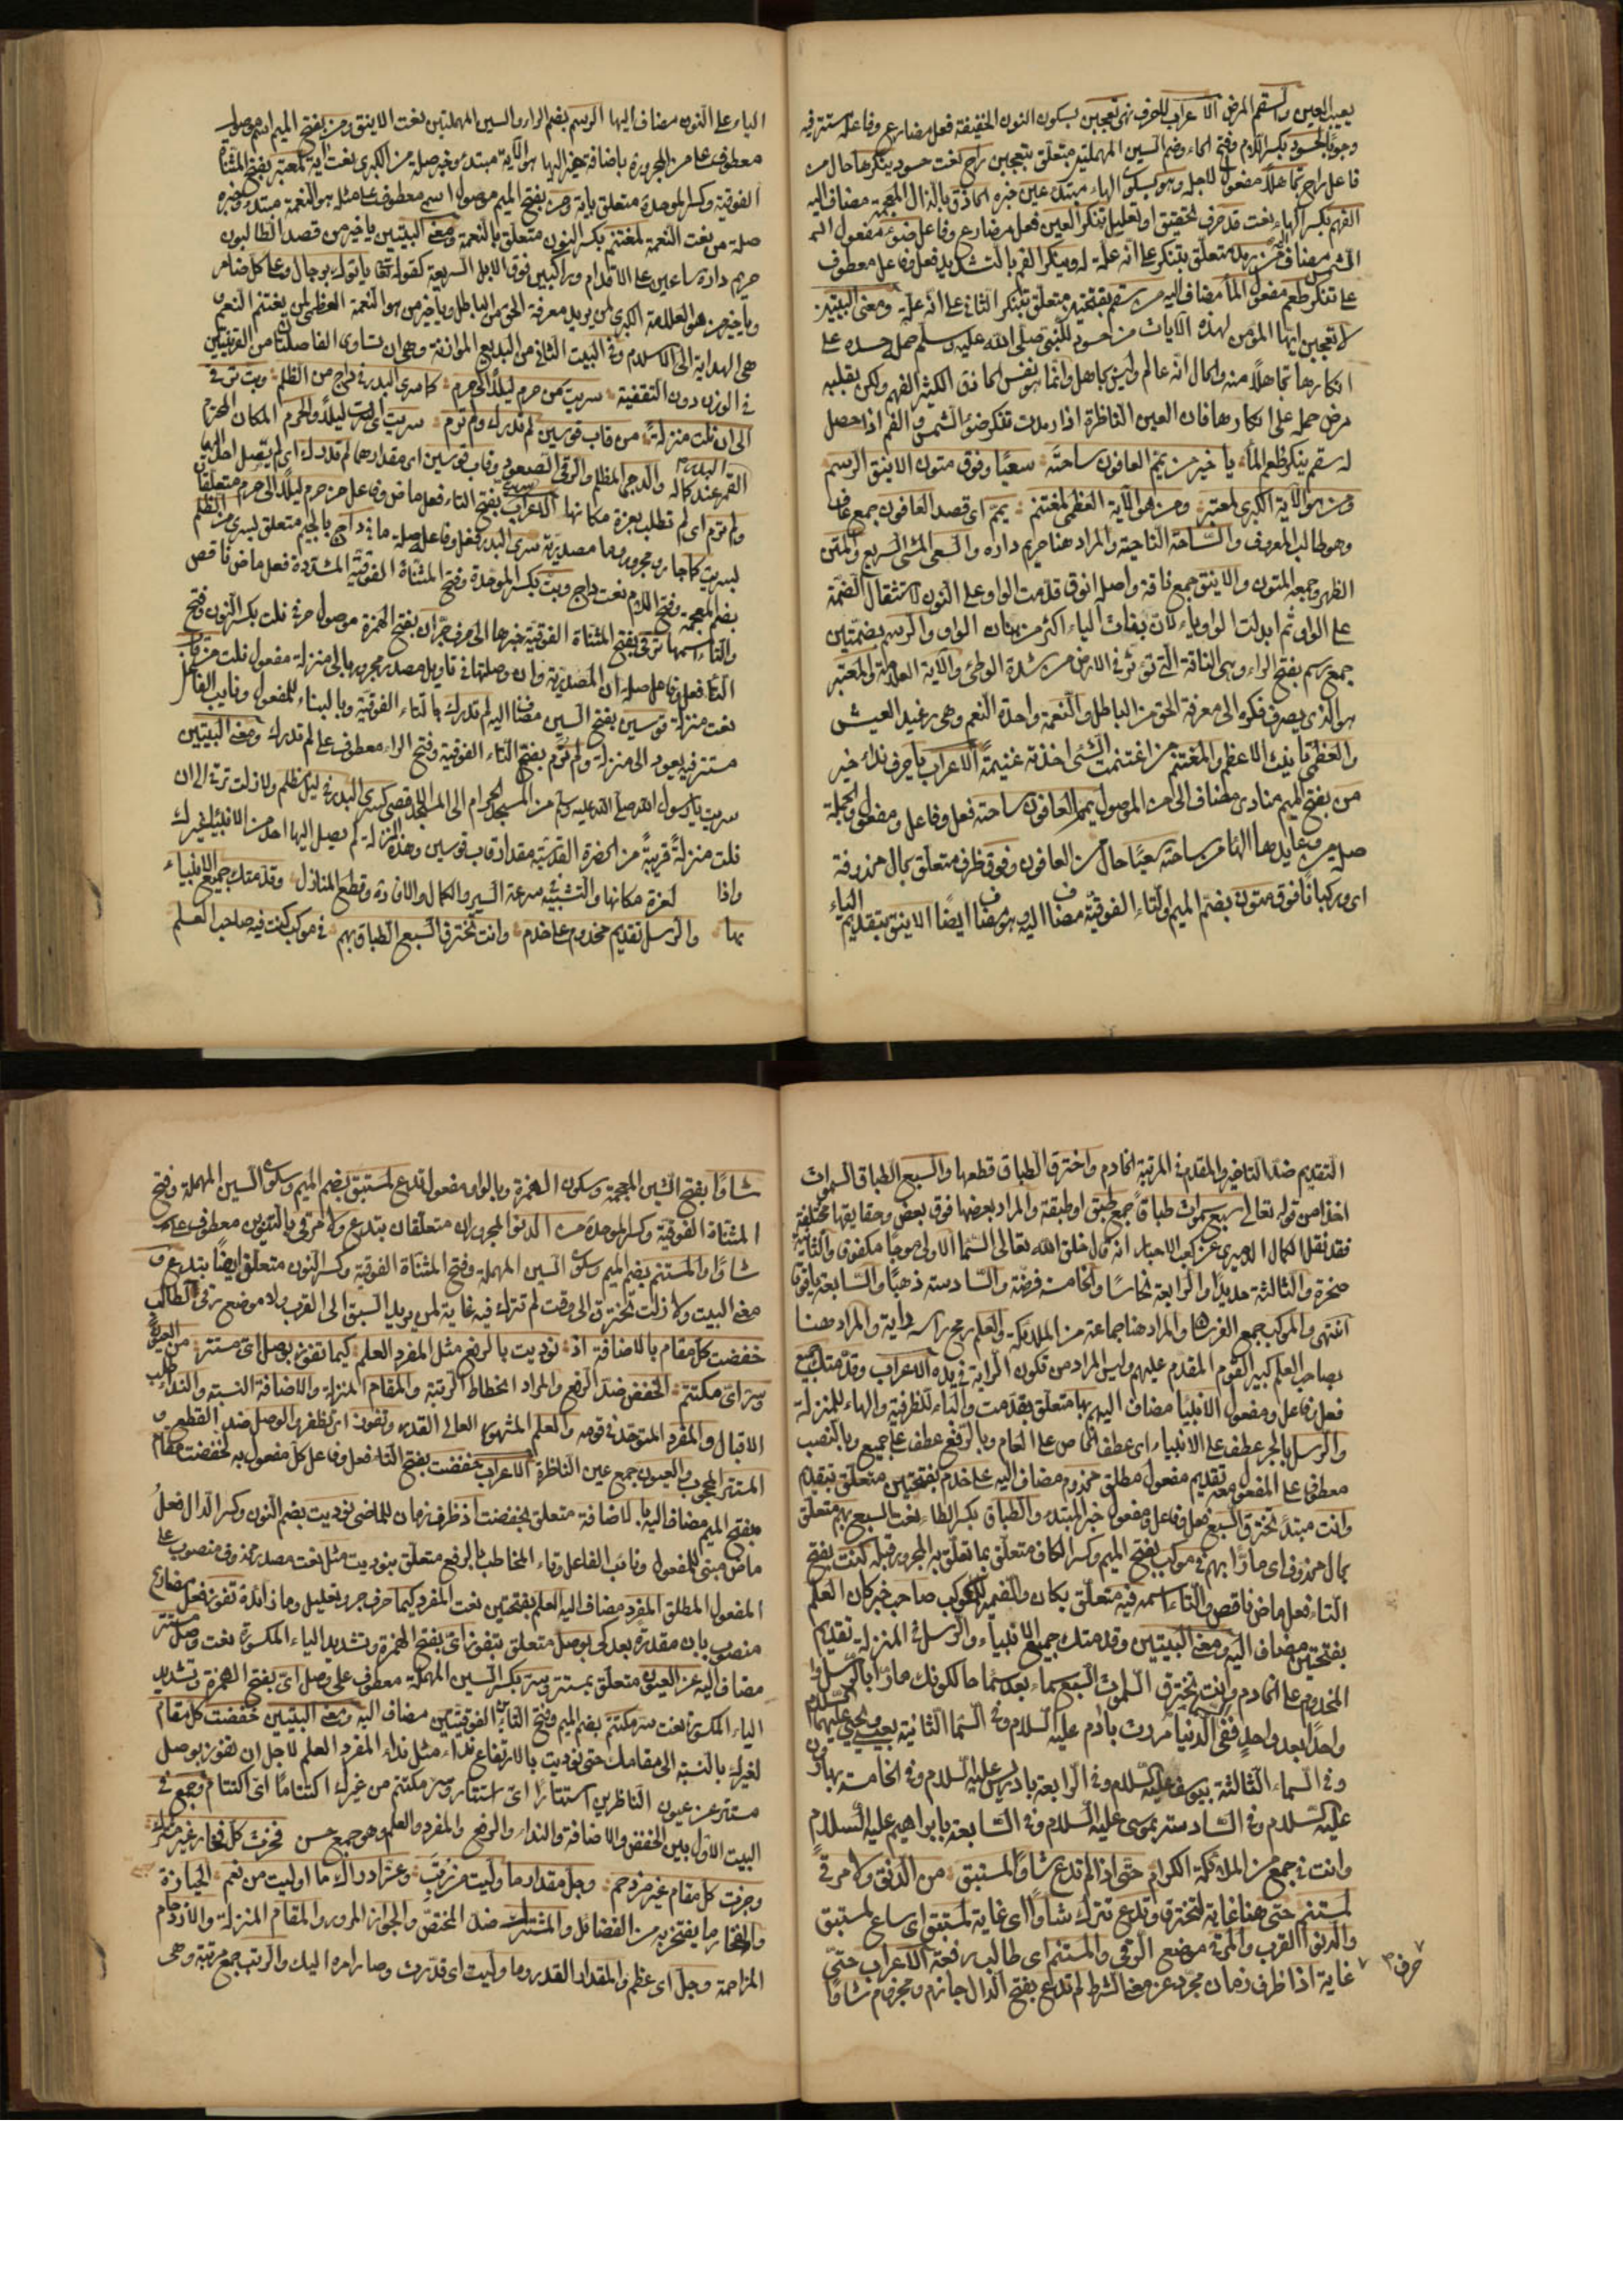 يعيب العين والسقم المرض الاعراب للحرف نهى تعجبن بسكون النون الخفيفة فعل مضارع وفاعله مستتر فيه
وجوبا لحسود بكسر اللام وفتح الحاء وضم السين المهملتين متعلق بتعجبن راح نعت حسود ينكرها حال من
فاعل راح تجاهلا مفعول لاجله وهو بسكون الهاء مبتدء عين خبره الحاذق بالذال المعجمة مضاف اليه
الفهم بكسر الهاء نعت قد حرف تحقيق او تقليل تنكر العين فعل مضارع وفاعل ضوء مفعول
الشمس مضاف من رمد متعلق بتنكر على انه علة له وينكر الفم بالتشديد فعل وفاعل معطوف
على تنكر طعم مفعول الماء مضاف اليه من سقم بفتحتين متعلق بتنكر الثاني على انه علة ومعنى البيتين
لا تعجبن ايها المؤمن لهذه الآيات من حسود للنبي صلى الله عليه وسلم حمله حسده على
انكارها تجاهلا منه والحال انه عالم وليس بجاهل وانما هو نفس الحاذق الكثير الفهم ولكن بقلبه
مرض حمله على انكارها فان العين الناظرة اذا رمدت تنكر ضوء الشمس والفم اذا حصل
له سقم ينكر طعم الماء يا خير من يمم العافون ساحته سعيا وفوق متون الاينق الرسم
ومن هو الآية الكبرى لمعتبر ومن هو الآية العظمى لمغتنم يمم اى قصد العافون جمع عاف
وهو طالب المعروف والساحة الناحية والمراد هنا حريم داره والسعى المشى السريع والمتن
الظهر وجمعه المتون والاينق جمع ناقة واصله انوق قدمت الواو على النون لاستثقال الضمة
على الواو ثم ابدلت الواو ياء لان بقاء الياء اكثر من بقاء الواو والرسم بضمتين
جمع رسم بفتح الراء وهى الناقة التى تؤثر فى الارض من شدة الوطئ والآية العلامة والمعتبر
هو الذى يصرف فكره الى معرفة الحق من الباطل والنعمة واحدة النعم وهى رغيد العيش
والعظمى تأنيث الاعظم والمغتنم من اغتنمت الشئ اخذته غنيمة الاعراب يا حرف نداء خير
من بفتح الميم منادى مضاف الى من الموصول يمم العافون ساحته فعل وفاعل ومفعول والجملة
صلة من وعايدها الهاء من ساحته سعيا حال من العافون وفوق ظرف متعلق بحال محذوفة
اى وركبانا فوق متون بضم الميم والتاء الفوقية مضاف اليه وهو مضاف ايضا الاينق بتقديم الياء
الياء على النون مضاف اليها الرسم بضم الراء والسين المهملتين نعت الاينق ومن بفتح الميم اسم موصول
معطوف على من المجرورة باضافة خير اليها هو الآية مبتدء وخبر صلة من الكبرى نعت آية لمعتبر بفتح المثناة
الفوقية وكسر الموحدة متعلق بآية ومن بفتح الميم موصول اسمى معطوف على مثله هو النعمة مبتدء وخبره
صلة من نعت النعمة لمغتنم بكسر النون متعلق بالنعمة ومعنى البيتين يا خير من قصد الطالبون
حريم داره ساعين على الاقدام وراكبين فوق الابل السريعة كقوله تعالى يأتوك رجالا وعلى كل ضامر
ويا خير من هو العلامة الكبرى لمن يريد معرفة الحق من الباطل ويا خير من هو النعمة العظمى لمن يغتنم النعم
هى الهداية الى الاسلام وفى البيت الثانى من البديع الموازنة وهى ان تتساوى الفاصلتان من القرينتين
فى الوزن دون التقفية سريت من حرم ليلا الى حرم كما سرى البدر فى داج من الظلم وبت ترقى
الى ان نلت منزلة من قاب قوسين لم تدرك ولم ترم سريت اى سرت ليلا والحرم المكان المحترم
البدر م
القمر عند كماله والدجى المظلم والرقى الصعود وقاب قوسين اى مقدارهما لم تدرك اى لم يصل احد اليها
ولم ترم اى لم تطلب بعزة مكانها الاعراب سريت بفتح التاء فعل ماض وفاعل من حرم ليلا الى حرم متعلقان
بسريت كما جار ومجرور وما مصدرية سرى البدر فعل وفاعل صلة ما فى داج بالجيم متعلق بسرى من الظلم
بضم المعجمة وفتح اللام نعت داج وبت بكسر الموحدة وفتح المثناة الفوقية المشددة فعل ماض ناقص
والتاء اسمها ترقى بفتح المثناة الفوقية خبرها الى حرف جر ان بفتح الهمزة موصول حرفى نلت بكسر النون وفتح
التاء فعل وفاعل صلة ان المصدرية وان وصلتها فى تأويل مصدر مجرور بالى منزلة مفعول نلت من قاب
نعت منزلة قوسين بفتح السين مضاف اليه لم تدرك بالتاء الفوقية وبالبناء للمفعول ونايب الفاعل
مستتر فيه يعود الى منزلة ولم ترم بفتح التاء الفوقية وفتح الراء معطوف على لم تدرك ومعنى البيتين
سريت يا رسول الله صلى الله عليه وسلم من المسجد الحرام الى المسجد الاقصى كسرى البدر فى ليل مظلم ولا زلت ترقى الى ان
نلت منزلة قريبة من الحضرة القدسية مقدار قاب قوسين وهذه المنزلة لم يصل اليها احد من الانبياء غيرك
واذا لعزة مكانها والتشبيه فى سرعة السير والكمال والانارة وقطع المنازل وقدمتك جميع الانبياء
بها والرسل تقديم مخدوم على خدم وانت تخترق السبع الطباق بهم فى موكب كنت فيه صاحب العلم
التقديم ضد التاخير والمقدم فى المرتبة الخادم واخترق الطباق قطعها والسبع الطباق السموات
اخذا من قوله تعالى سبع سموات طباقا جمع طبق او طبقة والمراد بعضها فوق بعض وحقايقها مختلفة
فقد نقل الكمال الدميرى عن كعب الاحبار انه قال خلق الله تعالى السماء الاولى موجا مكفوف والثانية
صخرة والثالثة حديدا والرابعة نحاسا والخامسة فضة والسادسة ذهبا والسابعة ياقوتا
انتهى والموكب جمع الفرسان والمراد هنا جماعة من الملائكة والعلم رمح براسه راية والمراد هنا
بصاحب العلم كبير القوم المقدم عليهم وليس المراد من تكون الراية فى يده الاعراب وقدمتك جميع
فعل وفاعل ومفعول الانبيا مضاف اليهم بها متعلق بقدمت والباء للظرفية والهاء للمنزلة
والرسل بالجر عطف على الانبياء اى عطف الخاص على العام وبالرفع عطف على جميع وبالنصب
معطوفا على المفعول معه تقديم مفعول مطلق مخدوم مضاف اليه على خدم بفتحتين متعلق بتقديم
وانت مبتدء تخترق السبع فعل وفاعل ومفعول خبر المبتدء والطباق بكسر الطاء نعت السبع بهم متعلق
بحال محذوف اى مارا بهم فى موكب بفتح الميم وكسر الكاف متعلق بما تعلق به المجرور قبله كنت بفتح
التاء فعل ماض ناقص والتاء اسمه فيه متعلق بكان والضمير للموكب صاحب خبر كان العلم
بفتحتين مضاف اليه ومعنى البيتين وقدمتك جميع الانبياء والرسل فى المنزلة تقديم
المخدوم على الخادم وانت تخترق السموات السبع سماء بعد سماء حال كونك مارا بالرسل
واحدا بعد واحد ففى الدنيا مررت بآدم عليه السلام وفى السماء الثانية بعيسى ويحيى عليهما السلام
وفى السماء الثالثة بيوسف عليه السلام وفى الرابعة بادريس عليه السلام وفى الخامسة بهارون
عليه السلام وفى السادسة بموسى عليه السلام وفى السابعة بابراهيم عليه السلام
وانت فى جمع من الملائكة الكرام حتى اذا لم تدع شأوا لمستبق من الدنو ولا مرقى
لمستنم حتى هنا غاية لتخترق وتدع تترك شأوا اى غاية لمستبق اى ساع لمستبق
والدنو القرب والمرقى موضع الرقى والمستنم اى طالب رفعة الاعراب حتى
حرف م غاية اذا ظرف زمان مجرد عن معنى الشرط لم تدع بفتح الدال جازم ومجزوم شأوا
شأوا بفتح الشين المعجمة وسكون الهمزة وبالواو مفعول تدع لمستبق بضم الميم وسكون السين المهملة وفتح
المثناة الفوقية وكسر الموحدة من الدنو المجروران متعلقان بتدع ولا مرقى بالتنوين معطوف على
شأوا والمستنم بضم الميم وسكون السين المهملة وفتح المثناة الفوقية وكسر النون متعلق ايضا بتدع و
معنى البيت ولا زلت تخترق الى وقت لم تترك فيه غاية لمن يريد السبق الى القرب ولا موضع ترقى لطالب
خفضت كل مقام بالاضافة اذ نوديت بالرفع مثل المفرد العلم كيما تفوز بوصل اى مستتر من العيون
وسر اى مكتتم الخفض ضد الرفع والمراد انحطاط الرتبة والمقام المنزلة والاضافة النسبة والنداء طلب
الاقبال والمفرد المتوحد فى قومه والعلم المشهور العالى القدر وتفوز اى تظفر والوصل ضد القطع و
المستتر المحجوب والعيون جمع عين الناظرة الاعراب خفضت بفتح التاء فعل وفاعل كل مفعول به لخفضت مقام
بفتح الميم مضاف اليه بالاضافة متعلق بخفضت اذ ظرف زمان للماضى نوديت بضم النون وكسر الدال فعل
ماض مبنى للمفعول ونائب الفاعل وتاء المخاطب بالرفع متعلق بنوديت مثل نعت مصدر محذوف منصوب على
المفعول المطلق المفرد مضاف اليه العلم بفتحتين نعت المفرد كيما حرف جر وتعليل وما زائدة تفوز فعل مضارع
منصوب بان مقدرة بعد كى بوصل متعلق بتفوز اى بفتح الهمزة وتشديد الياء المكسورة نعت وصل مستتر
مضاف اليه عن العيون متعلق بمستتر وسر بكسر السين المهملة معطوف على وصل اى بفتح الهمزة وتشديد
الياء المكسورة نعت سر مكتتم بضم الميم وفتح التائين الفوقيتين مضاف اليه ومعنى البيتين خفضت كل مقام
لغيرك بالنسبة الى مقامك حتى نوديت بالارتفاع نداء مثل نداء المفرد العلم لاجل ان تفوز بوصل
مستتر عن عيون الناظرين استتارا اى استتار وسر مكتتم من غيرك اكتتاما اى اكتتام وجمع فى
البيت الاول بين الخفض والاضافة والنداء والرفع والمفرد والعلم وهو جمع حسن فحزت كل فخار غير مشترك
وجزت كل مقام غير مزدحم وجل مقدار ما وليت من رتب وعز ادراك ما اوليت من نعم الحيازة
والفخار ما يفتخر به من الفضائل والمشترك ضد المختص والجواز المرور والمقام المنزلة والازدحام
المزاحمة وجل اى عظم والمقدار القدر وما وليت اى قدرت وصار امره اليك والرتب جمع مرتبة وهى